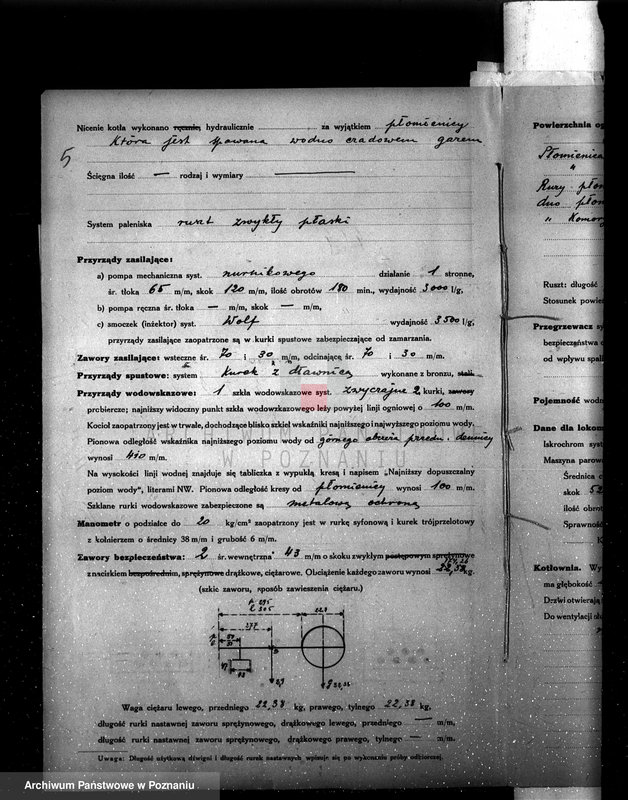 5
Nicenie kotła wykonano ręcznie, hydraulicznie za wyjątkiem płomienicy
Która jest spawana wodno gazem
Ścięgna ilość — rodzaj i wymiary —
System paleniska ruszt zwykły płaski
Przyrządy zasilające:
a) pompa mechaniczna syst. nurnikowego działanie 1 stronne,
śr. tłoka 65 m/m, skok 120 m/m, ilość obrotów 180 min., wydajność 3000 l/g,
b) pompa ręczna śr. tłoka — m/m, skok — m/m,
c) smoczek (inżektor) syst. Wolf wydajność 3500 l/g,
przyrządy zasilające zaopatrzone są w kurki spustowe zabezpieczające od zamarzania.
Zawory zasilające: wsteczne śr. 70 i 30 m/m, odcinające śr. 70 i 30 m/m.
Przyrządy spustowe: system Kurek z dławnicą wykonane z bronzu, stali.
Przyrządy wodowskazowe: 1 szkła wodowskazowe syst. zwyczajne 2 kurki, zawory
probiercze; najniższy widoczny punkt szkła wodowzkazowego leży powyżej linji ogniowej o 100 m/m.
Kocioł zaopatrzony jest w trwałe, dochodzące blisko szkieł wskaźniki najniższego i najwyższego poziomu wody.
Pionowa odległość wskaźnika najniższego poziomu wody od górnego obrzeża przedn. dennicy
wynosi 410 m/m.
Na wysokości linji wodnej znajduje się tabliczka z wypukłą kresą i napisem „Najniższy dopuszczalny
poziom wody", literami NW. Pionowa odległość kresy od płomienicy wynosi 100 m/m.
Szklane rurki wodowskazowe zabezpieczone są metalową ochroną
Manometr o podziałce do 20 kg/cm² zaopatrzony jest w rurkę syfonową i kurek trójprzelotowy
z kołnierzem o średnicy 38 m/m i grubość 6 m/m.
Zawory bezpieczeństwa: 2 śr. wewnętrzna 43 m/m o skoku zwykłym postępowym sprężynowe
z naciskiem bezpośrednim, sprężynowe drążkowe, ciężarowe. Obciążenie każdego zaworu wynosi 22,38 kg.
(szkic zaworu, sposób zawieszenia ciężaru.)
Waga ciężaru lewego, przedniego 22,38 kg, prawego, tylnego 22,38 kg,
długość rurki nastawnej zaworu sprężynowego, drążkowego lewego, przedniego — m/m,
długość rurki nastawnej zaworu sprężynowego, drążkowego prawego, tylnego — m/m.
Uwaga: Długość użytkową dźwigni i długość rurek nastawnych wpisuje się po wykonaniu próby odbiorczej.
W POZNANIU
Powierzchnia og
Rury płom
dno płom
" Komor
Ruszt: długość
Stosunek powie
Przegrzewacz sy
bezpieczeństwa o
od wpływu spali
Pojemność wodn
Dane dla lokom
Iskrochron syst
Maszyna parow
Średnica c
skok 52
ilość obrot
Sprawność
K
Kotłownia. Wy
ma głębokość
Drzwi otwierają s
Do wentylacji słu
Archiwum Państwowe w Poznaniu